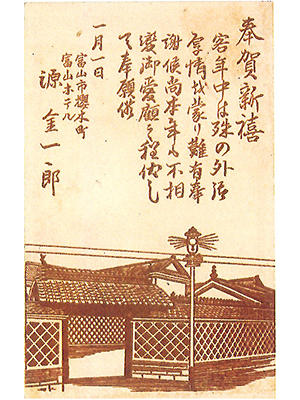 奉賀新禧
客年中は殊の外御
厚情を蒙り難有奉
謝候尚本年も不相
變御愛顧之程伏し
て奉願候
一月一日
富山市櫻木町
富山ホテル
源金一郎